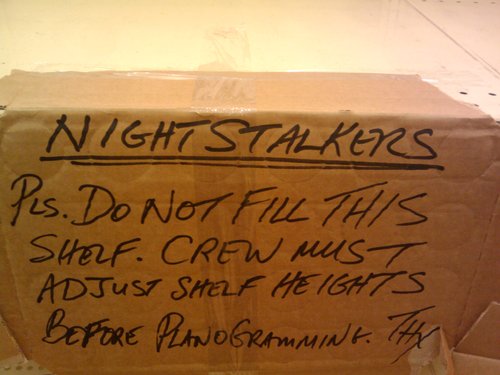 NIGHTSTALKERS
PLS. DO NOT FILL THIS
SHELF. CREW MUST
ADJUST SHELF HEIGHTS
BEFORE PLANOGRAMMING. THX